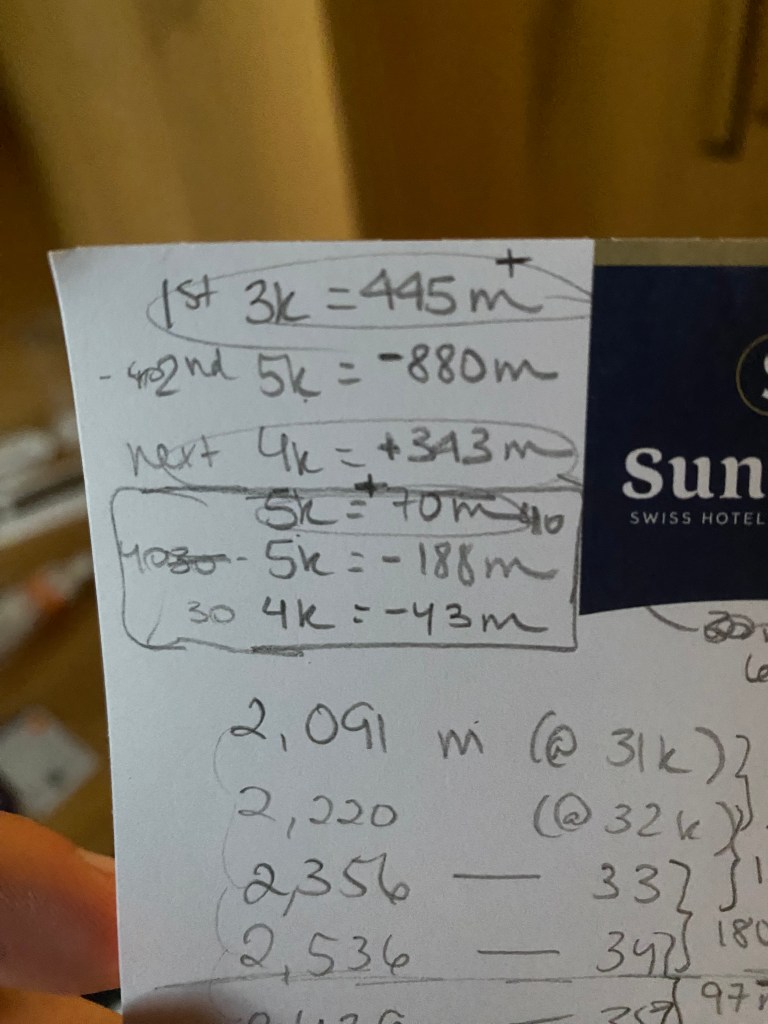 1st 3k = 445m +
- 40 2nd 5k = -880m
next 4k = +343m
5k = +70m 40
4030 - 5k = -188m
30 4k = -43m
Sun
SWISS HOTEL
2,091 m (@ 31k)
2,220 (@ 32k)
2,356 — 33
2,536 — 34 180
97